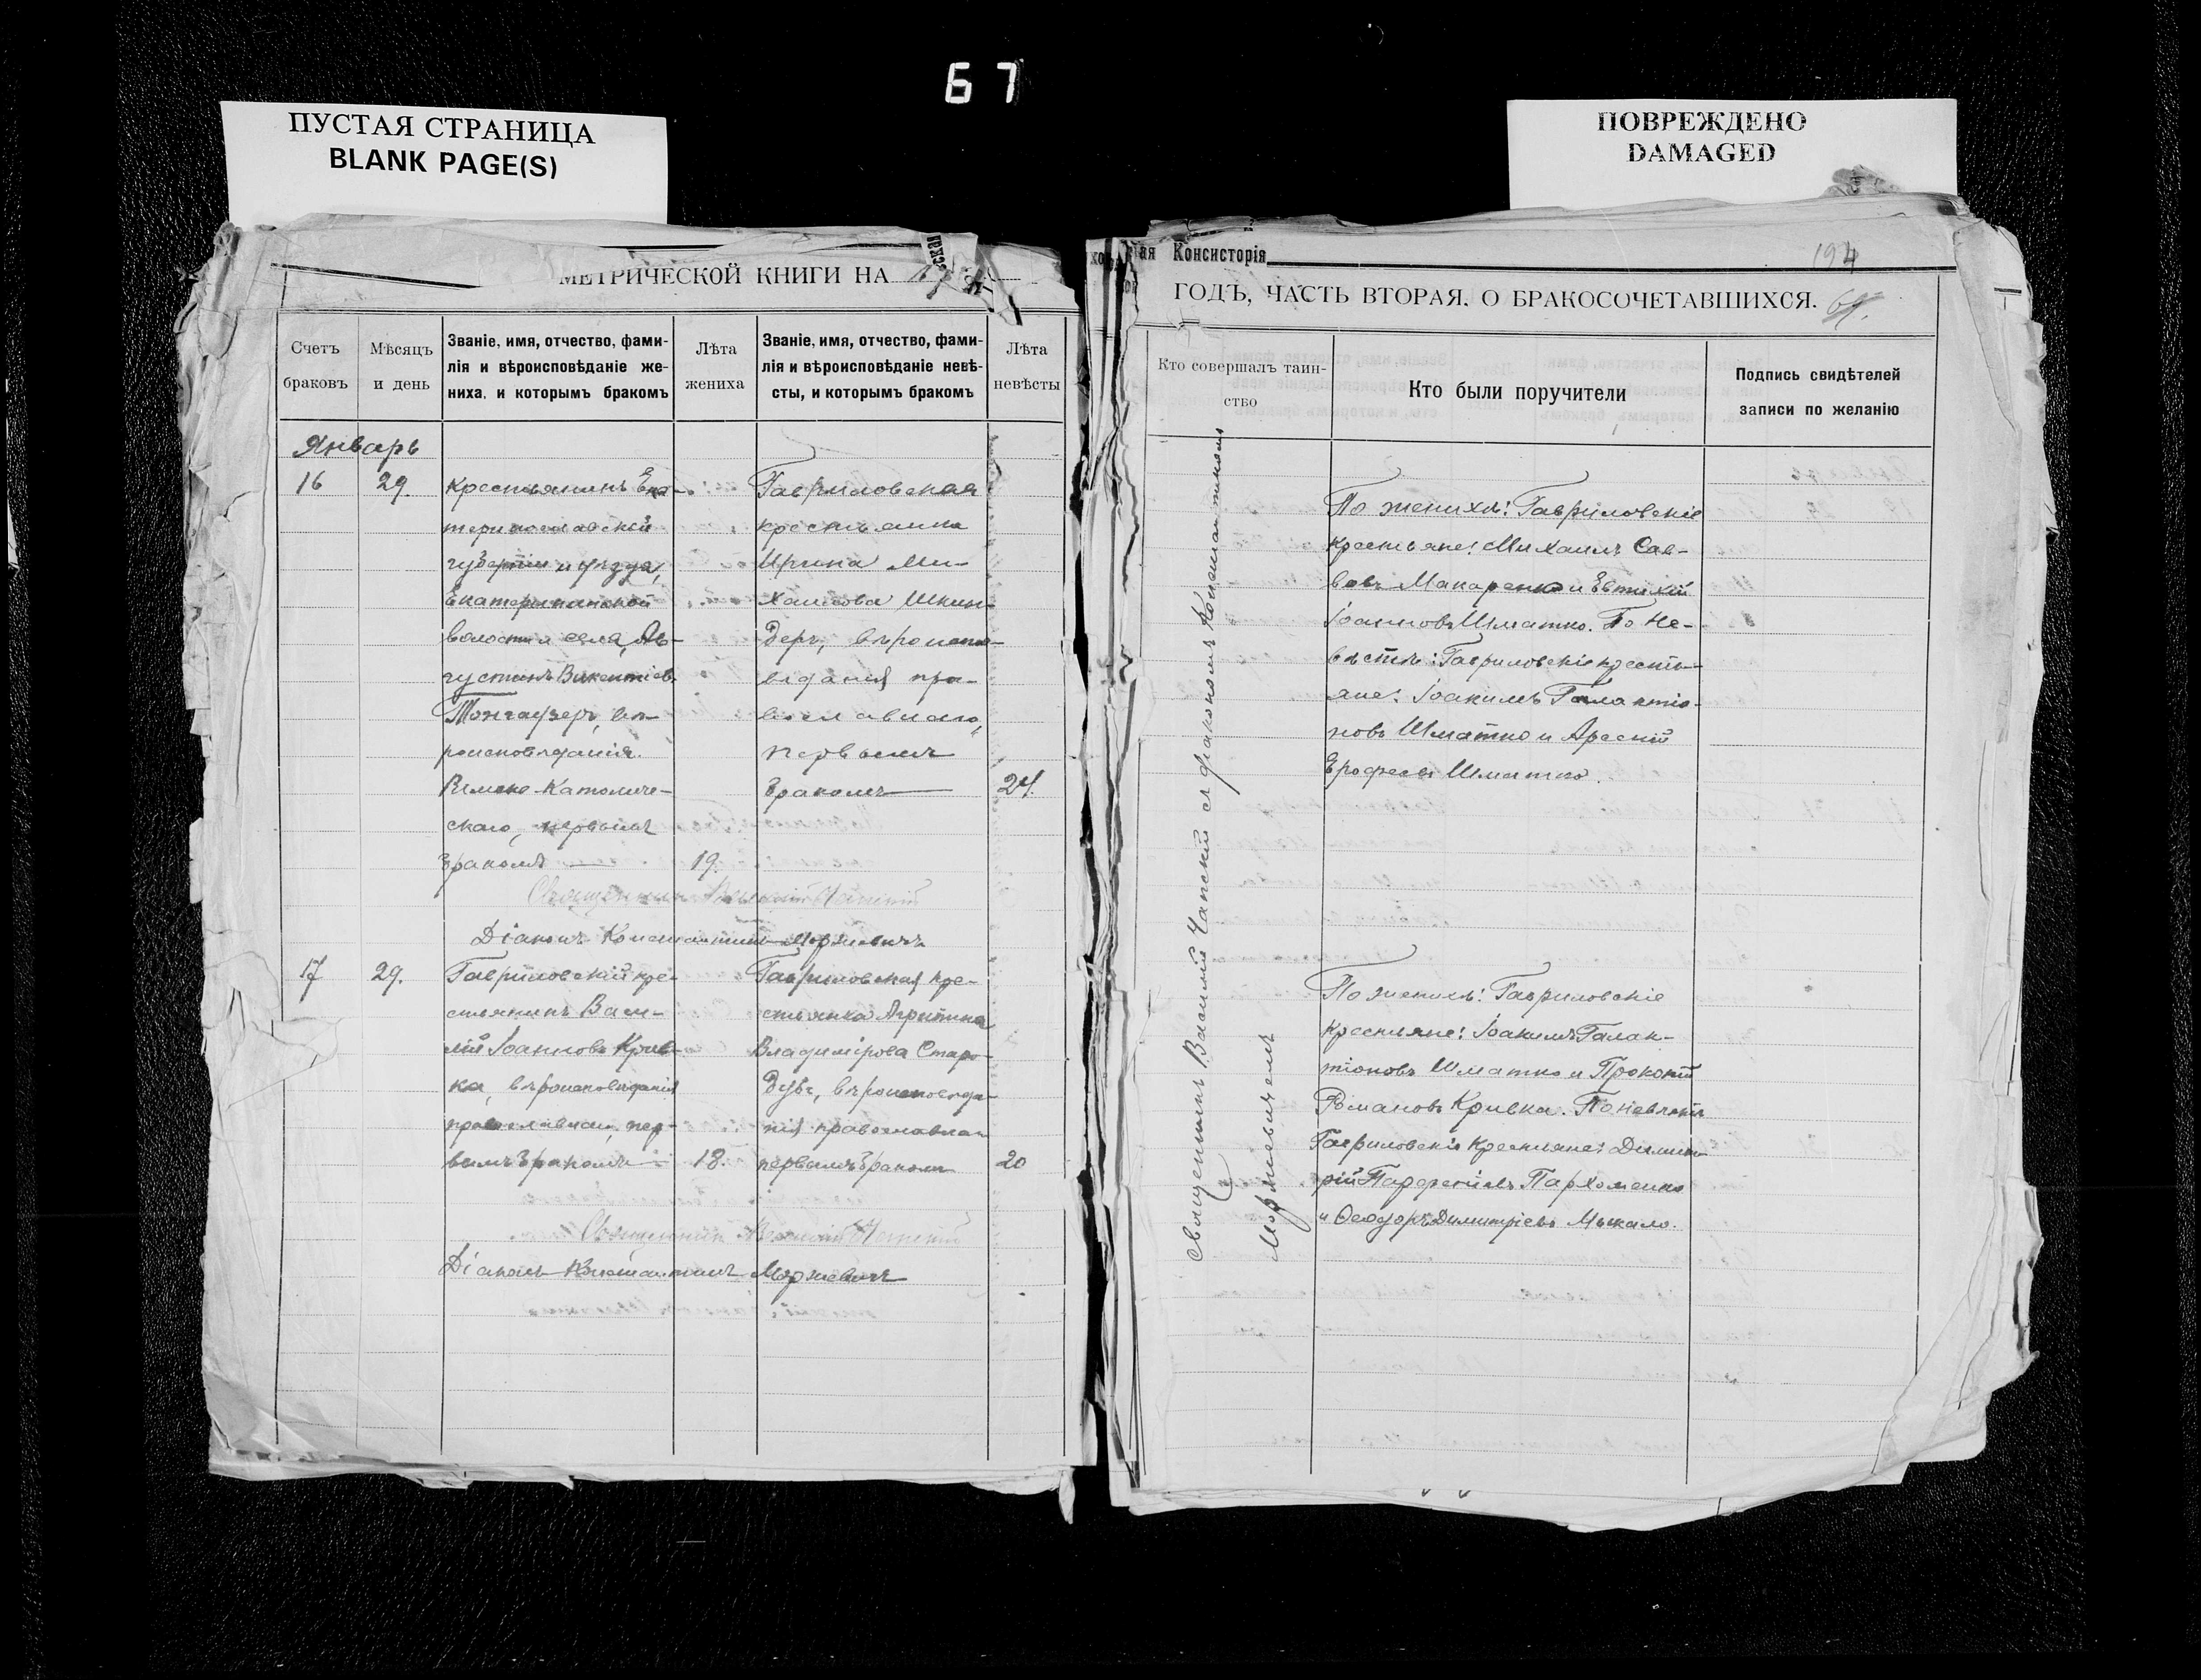 67
ПУСТАЯ СТРАНИЦА
BLANK PAGE(S)
ПОВРЕЖДЕНО
DAMAGED
МЕТРИЧЕСКОЙ КНИГИ НА
Счетъ браковъ
Мѣсяцъ и день
Званіе, имя, отчество, фами-
лія и вѣроисповѣданіе же-
ниха, и которымъ бракомъ
Лѣта жениха
Званіе, имя, отчество, фами-
лія и вѣроисповѣданіе невѣ-
сты, и которымъ бракомъ
Лѣта невѣсты
Январь
16
29.
Крестьянинъ Ека-
теринославской
губерніи и уѣзда,
Екатерининской
волости и села, Ав-
густинъ Викентіев.
Тонгаузеръ, вѣ-
роисповѣданія
Римско-Католиче-
скаго, первымъ
бракомъ
19.
Гавриловская
крестьянка
Ирина Ми-
хаилова Шкин-
деръ, вѣроиспо-
вѣданія пра-
вославнаго,
первымъ
бракомъ
24.
Священникъ Василій Чапскій
Діаконъ Константинъ Моржевичъ
17
29.
Гавриловскій кре-
стьянинъ Васи-
лій Іоанновъ Крив-
ка, вѣроисповѣданія
православнаго, пер-
вымъ бракомъ
18.
Гавриловская кре-
стьянка Агрипина
Владимірова Старо-
дубъ, вѣроисповѣда-
нія православнаго
первымъ бракомъ
20
Священникъ Василій Чапскій
Діаконъ Константинъ Моржевичъ
ая Консисторія
194
ГОДЪ, ЧАСТЬ ВТОРАЯ, О БРАКОСОЧЕТАВШИХСЯ.
Кто совершалъ таин-
ство
Кто были поручители
Подпись свидѣтелей
записи по желанію
Священникъ Василій Чапскій съ діакономъ Константиномъ
Моржевичемъ
По женихѣ: Гавриловскіе
крестьяне: Михаилъ Сав-
вовъ Макаренко и Евтихій
Іоанновъ Шматко. По не-
вѣстѣ: Гавриловскіе кресть-
яне: Іоакимъ Галактіо-
новъ Шматко и Арсеній
Ерофеевъ Шматко.
По женихѣ: Гавриловскіе
крестьяне: Іоакимъ Галак-
тіоновъ Шматко и Прокопій
Романовъ Кривка. По невѣстѣ
Гавриловскіе крестьяне: Димит-
рій Парфеніевъ Пархоменко
и Ѳеодоръ Димитріевъ Мыкало.